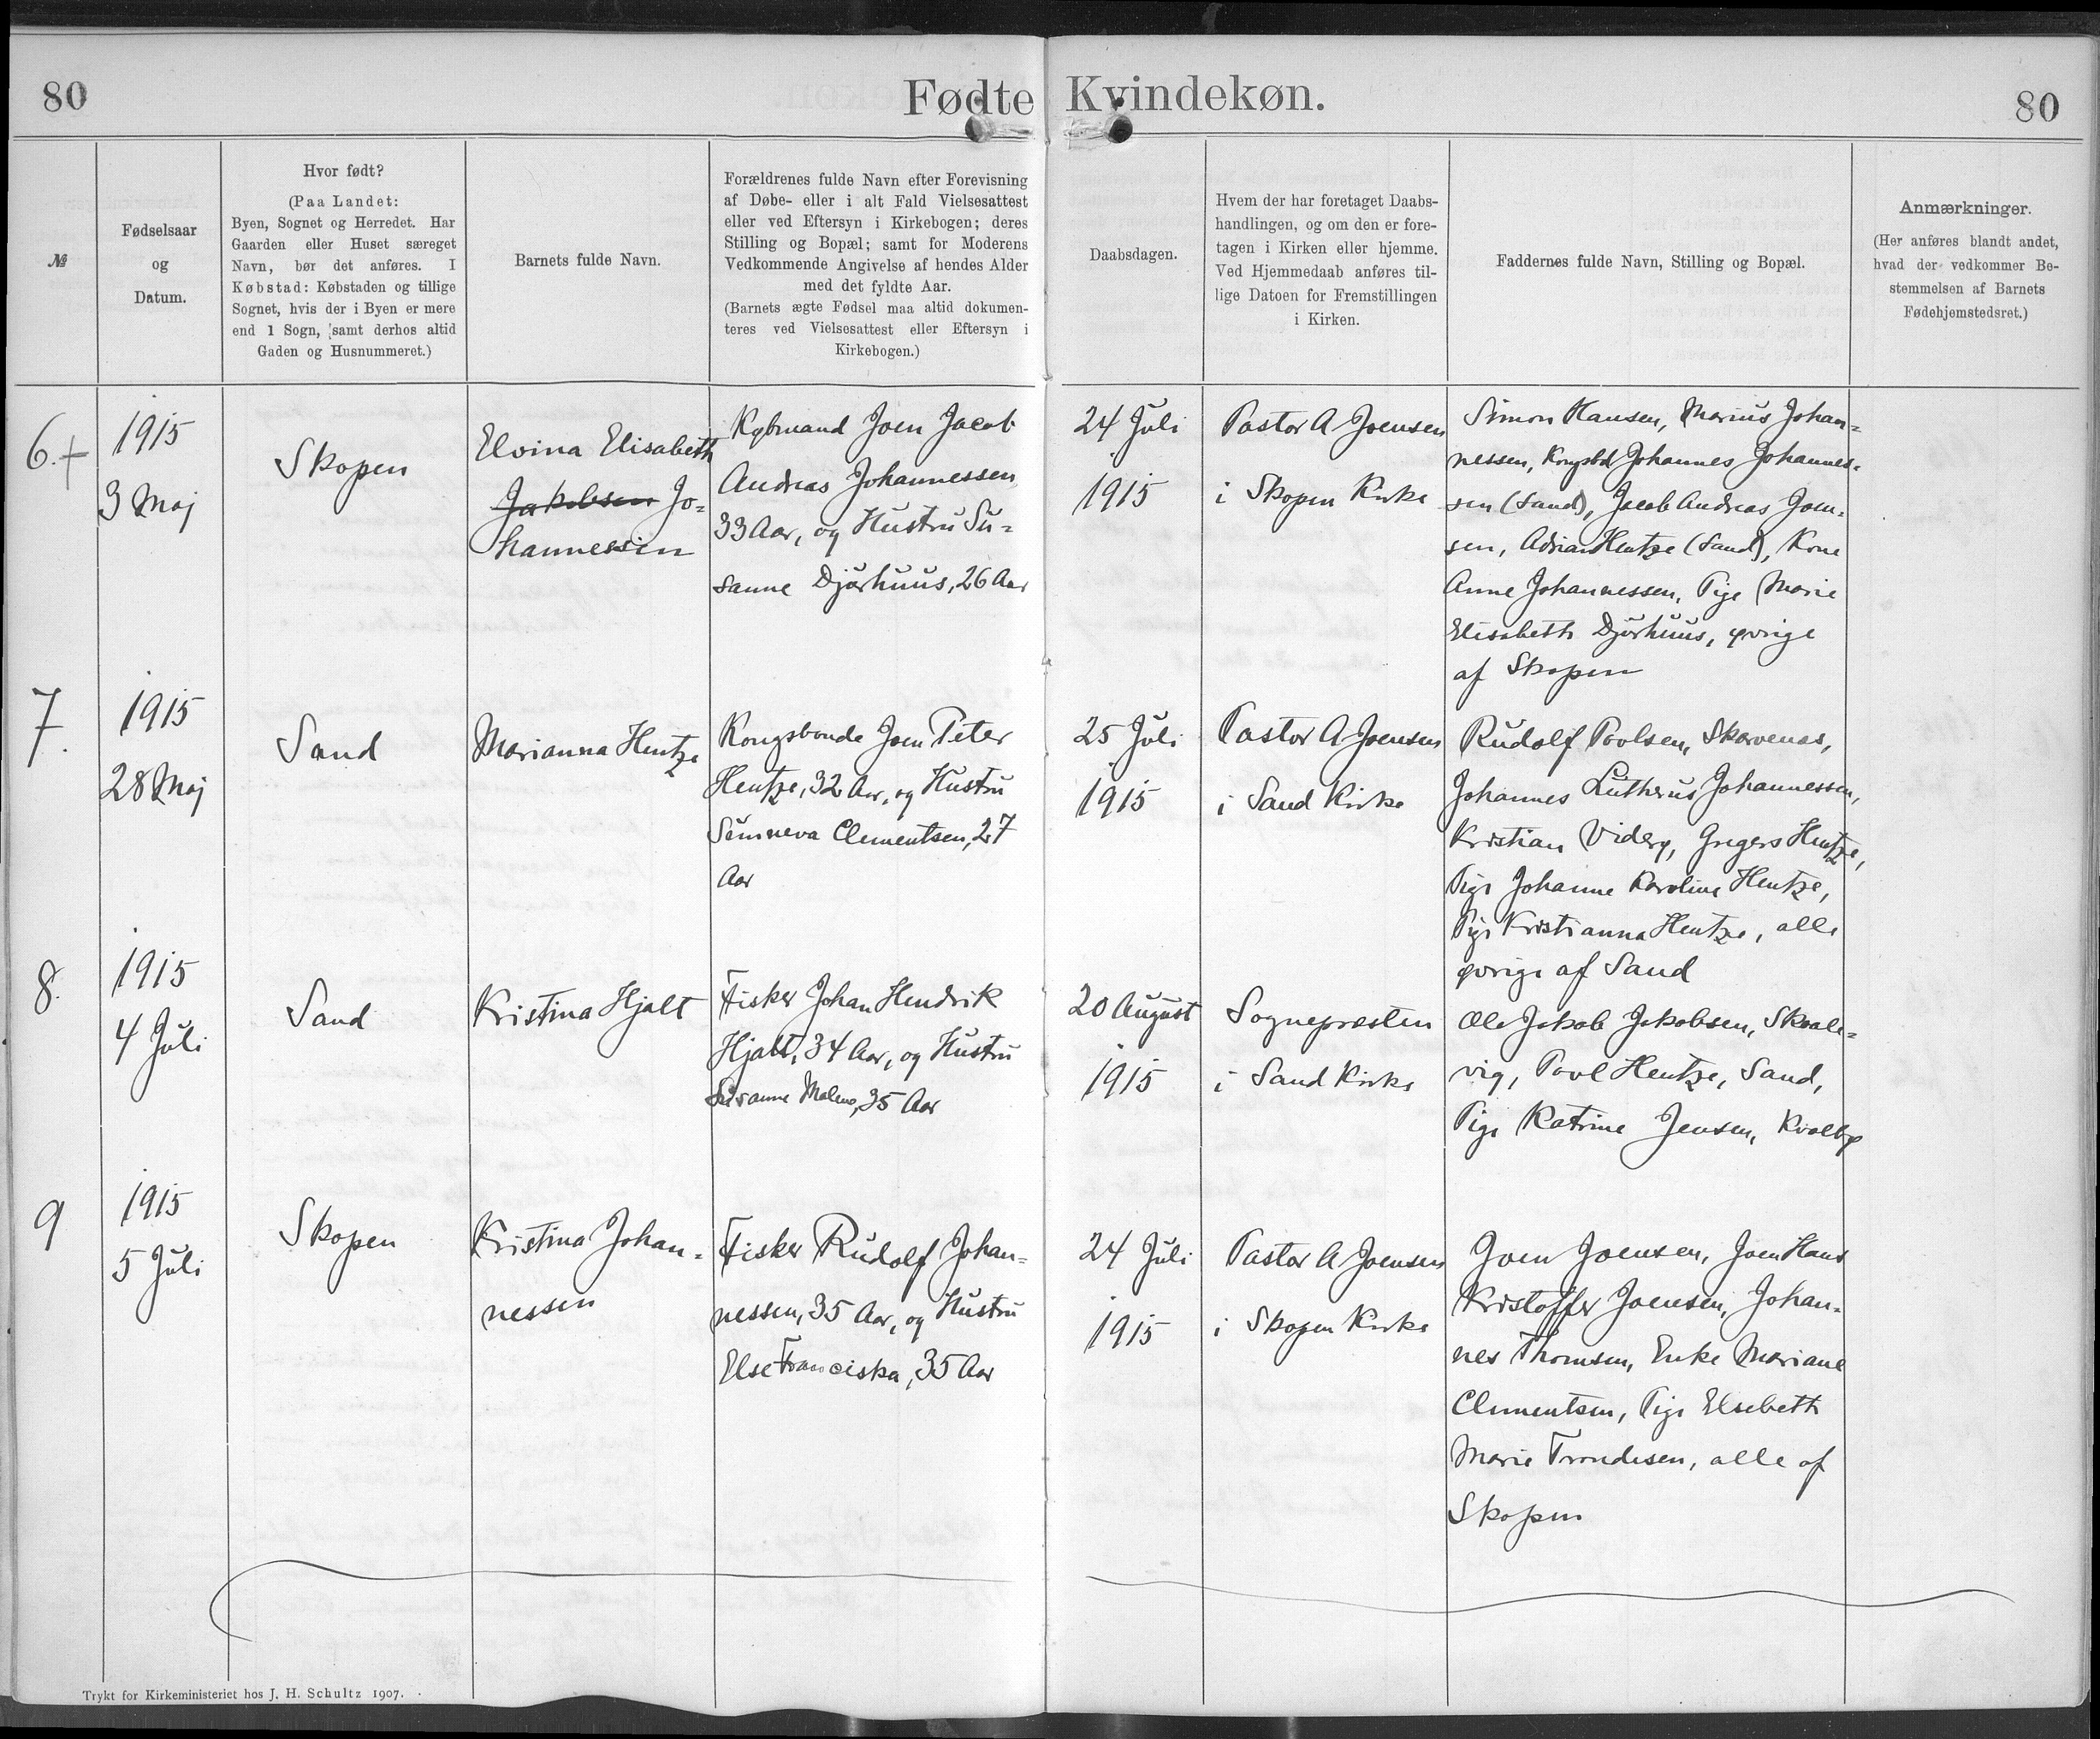 80
Fødte Kvindekøn.
80
№
Fødselsaar
og
Datum.
Hvor født?
(Paa Landet:
Byen, Sognet og Herredet. Har
Gaarden eller Huset særeget
Navn, bør det anføres. I
Købstad: Købstaden og tillige
Sognet, hvis der i Byen er mere
end 1 Sogn, samt derhos altid
Gaden og Husnummeret.)
Barnets fulde Navn.
Forældrenes fulde Navn efter Forevisning
af Døbe- eller i alt Fald Vielsesattest
eller ved Eftersyn i Kirkebogen; deres
Stilling og Bopæl; samt for Moderens
Vedkommende Angivelse af hendes Alder
med det fyldte Aar.
(Barnets ægte Fødsel maa altid dokumen-
teres ved Vielsesattest eller Eftersyn i
Kirkebogen.)
Daabsdagen.
Hvem der har foretaget Daabs-
handlingen, og om den er fore-
tagen i Kirken eller hjemme.
Ved Hjemmedaab anføres til-
lige Datoen for Fremstillingen
i Kirken.
Faddernes fulde Navn, Stilling og Bopæl.
Anmærkninger.
(Her anføres blandt andet,
hvad der vedkommer Be-
stemmelsen af Barnets
Fødehjemstedsret.)
6.+
1915
3 Maj
Skopen
Elvina Elisabeth
Jakobsen Jo-
hannessen
Købmand Joen Jacob
Andreas Johannessen
33 Aar, og Hustru Su-
sanne Djurhuus, 26 Aar
24 Juli
1915
Pastor A Joensen
i Skopen Kirke
Simon Hansen, Marius Johan-
nessen, Kongsbd Johannes Johannes-
sen (Sand), Jacob Andreas Joen-
sen, Adrian Hentze (Sand), Kone
Anne Johannessen, Pige Marie
Elisabeth Djurhuus, øvrige
af Skopen
7.
1915
28 Maj
Sand
Marianna Hentze
Kongsbonde Joen Peter
Hentze, 32 Aar, og Hustru
Sunneva Clementsen, 27
Aar
25 Juli
1915
Pastor A Joensen
i Sand Kirke
Rudolf Poulsen, Skarvenas,
Johannes Lutherus Johannessen,
Kristian Viderø, Gregers Hentze,
Pige Johanne Karoline Hentze,
Pige Kristianna Hentze, alle
øvrige af Sand
8.
1915
4 Juli
Sand
Kristina Hjalt
Fisker Johan Hendrik
Hjalt, 34 Aar, og Hustru
Susanne Malene, 35 Aar
20 August
1915
Sognepræsten
i Sand Kirke
Ole Jakob Jakobsen, Skaale-
vig, Povl Hentze, Sand,
Pige Katrine Jensen, Kvalbø
9
1915
5 Juli
Skopen
Kristina Johan-
nessen
Fisker Rudolf Johan-
nessen, 35 Aar, og Hustru
Else Franciska, 35 Aar
24 Juli
1915
Pastor A Joensen
i Skopen Kirke
Joen Joensen, Joen Hans
Kristoffer Joensen, Johan-
nes Thomsen, Enke Mariane
Clementsen, Pige Elsebeth
Marie Trondesen, alle af
Skopen
Trykt for Kirkeministeriet hos J. H. Schultz 1907.